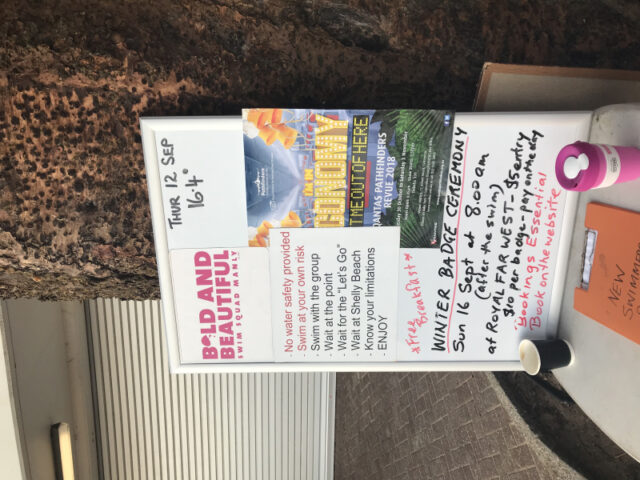 THUR 12 SEP
16.4°
BOLD AND
BEAUTIFUL
SWIM SQUAD MANLY
ECONOMY
ME OUT OF HERE
QANTAS PATHFINDERS
REVUE 2018
- No water safety provided
- Swim at your own risk
- Swim with the group
- Wait at the point
- Wait for the "Let's Go"
- Wait at Shelly Beach
- Know your limitations
- ENJOY
*Free
Breakfast*
WINTER BADGE CEREMONY
Sun 16 Sept at 8.00am
(after the swim)
at ROYAL FAR WEST - $5 entry
$10 per badge - pay on the day
Bookings Essential
Book on the website
NEW